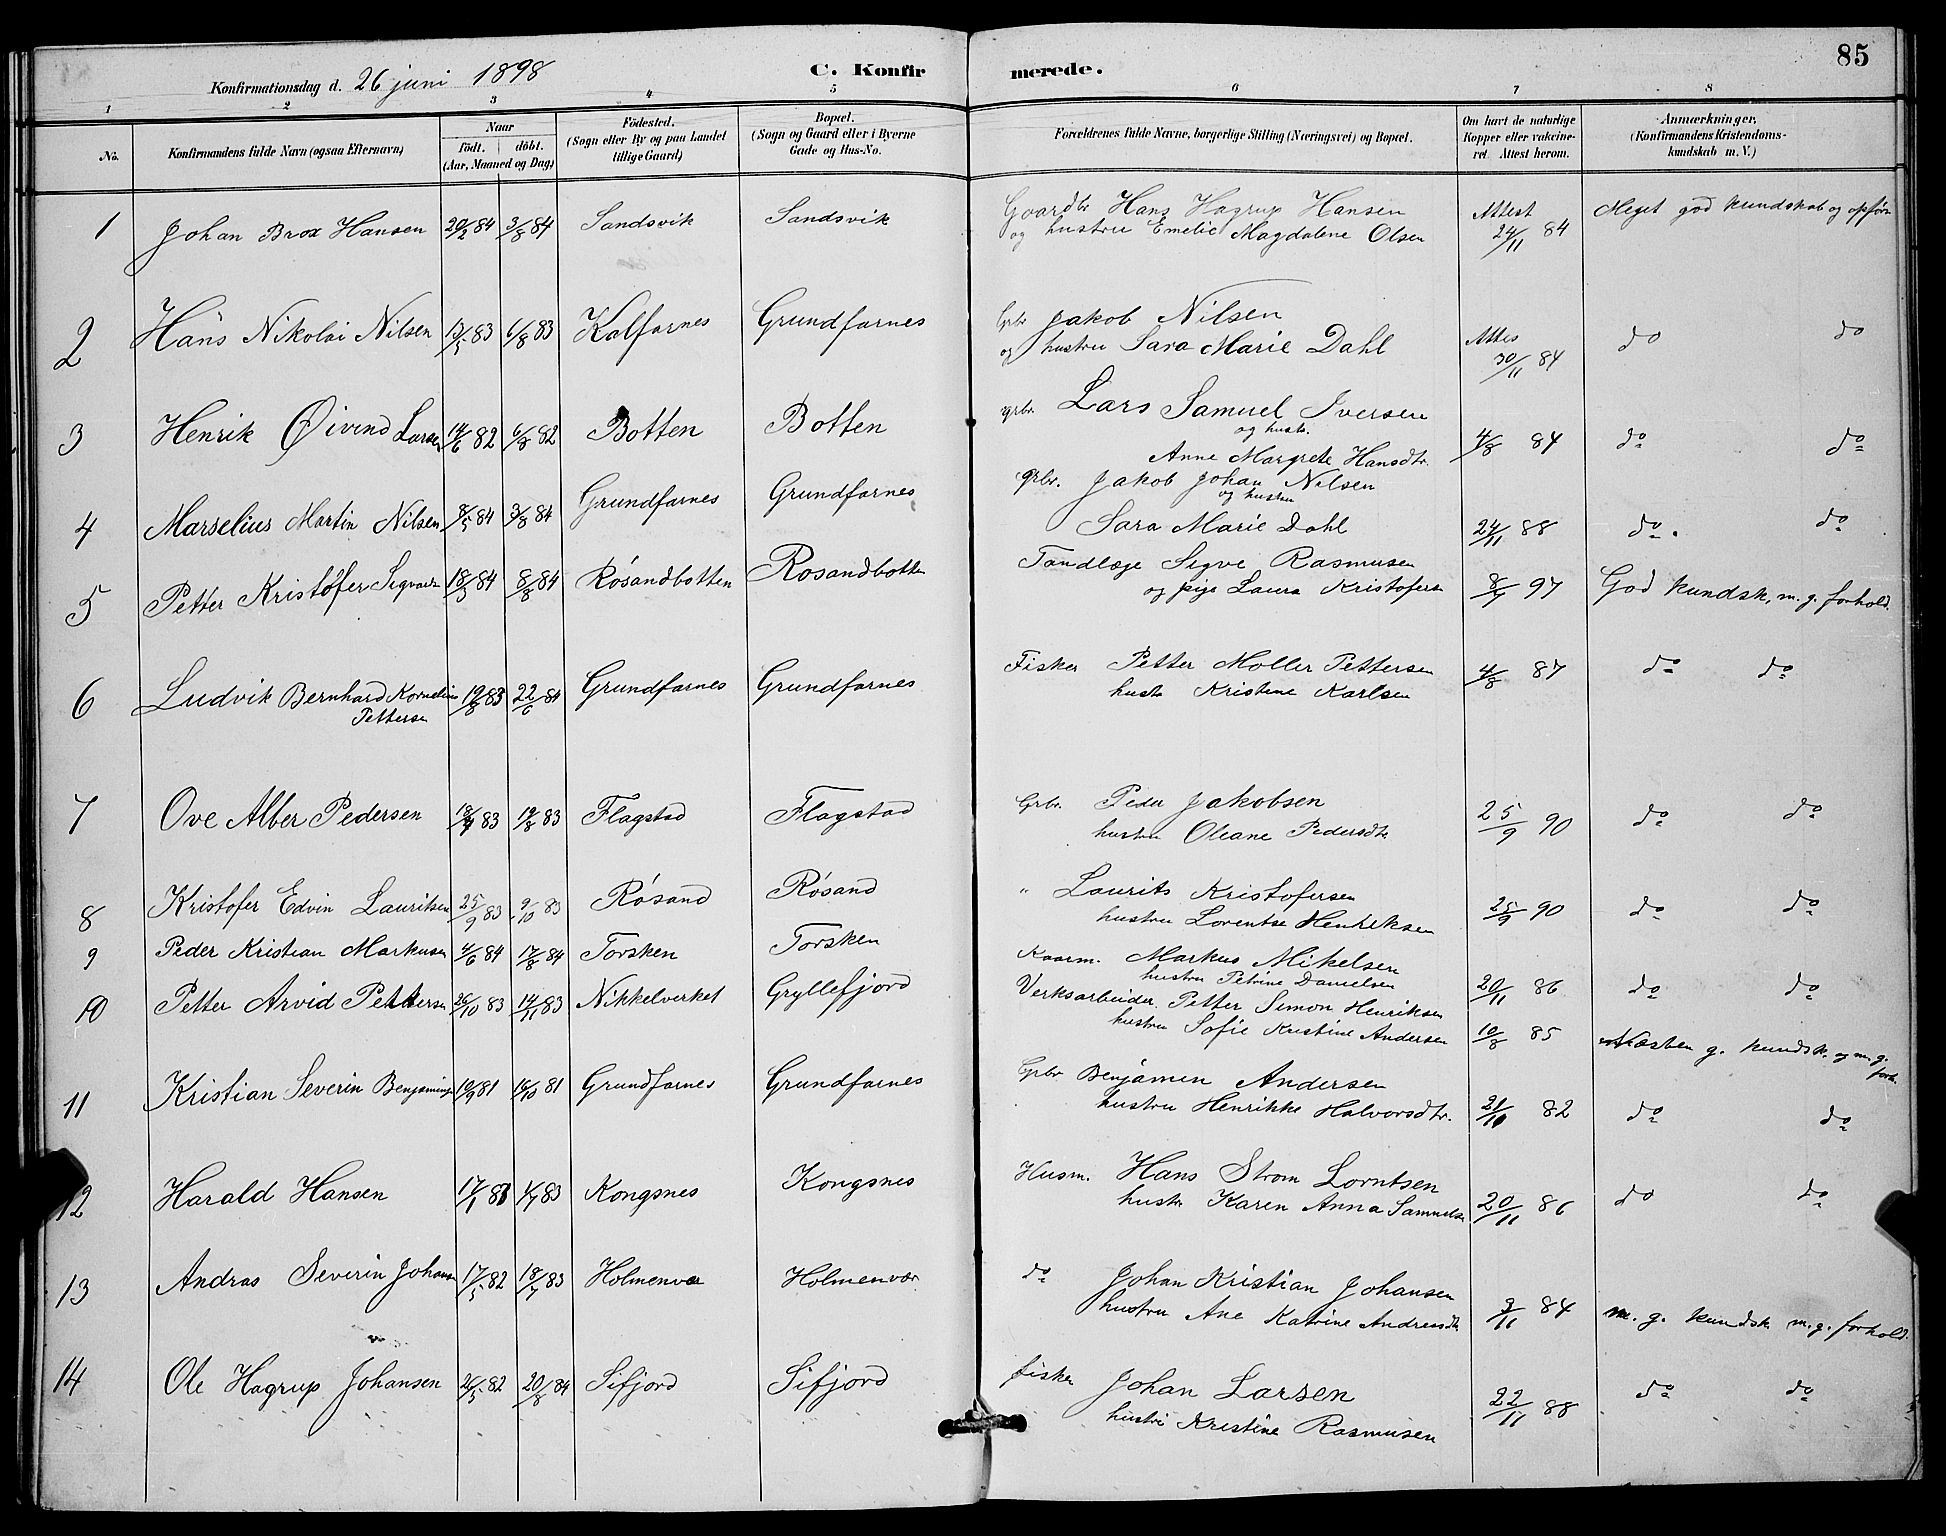 85
Konfirmationsdag d. 26 juni 1898
C. Konfirmerede.
1 2 3 4 5 6 7 8
No.
Konfirmandens fulde Navn (ogsaa Efternavn)
Naar
födt. döbt.
(Aar, Maaned og Dag)
Födested.
(Sogn eller By og paa Landet
tillige Gaard)
Bopæl.
(Sogn og Gaard eller i Byerne
Gade og Hus-No.
Forældrenes fulde Navne, borgerlige Stilling (Næringsvei) og Bopæl.
Om havt de naturlige
Kopper eller vakcine-
ret. Attest herom.
Anmærkninger.
(Konfirmandens Kristendoms-
kundskab m. V.)
1 Johan Brox Hansen 29/2 84 3/8 84 Sandsvik Sandsvik
Gaardbr Hans Hagrup Hansen
og hustru Emelie Magdalene Olsen
Attest
24/11 84
Meget god kundskab og opför
2 Hans Nikolai Nilsen 13/5 83 6/8 83 Kalfarnes Grundfarnes
Grbr Jakob Nilsen
og hustru Sara Marie Dahl
Attes
30/11 84
do do
3 Henrik Øivend Larsen 14/6 82 6/8 82 Botten Botten
grbr. Lars Samuel Iversen
og hustr.
Anne Margrete Hansdtr.
4/8 84 do do
4 Marselius Martin Nilsen 8/5 84 3/8 84 Grundfarnes Grundfarnes
grbr. Jakob Johan Nilsen
og hustru
Sara Marie Dahl
24/11 88 do. do
5 Petter Kristofer 18/3 84 8/8 84 Rösandbotten Rosandbotten
Tandlæge Sigve Rasmusen
og pige Laura Kristofersen
97 God kundsk, m. g. forhold.
6 Ludvik Bernhard Kornelius
Pettersen
19/8 83 22/6 84 Grundfarnes Grundfarnes
Fisker Petter Moller Pettersen
hustr Kristine Karlsen
4/8 87 do do
7 Ove Alber Pedersen 83 19/8 83 Flagstad Flagstad
Grbr. Peder Jakobsen
hustru Oleane Pedersdtr
25/9 90 do do
8 Kristofer Edvin Lauritsen 25/9 83 9/10 83 Rösand Rösand
" Laurits Kristofersen
hustru Lorentse Henriksen
25/9 90 do do
9 Peder Kristian Markusen 4/6 84 17/8 84 Torsken Torsken
Kaarm. Markus Mikelsen
hustru Petrine Danielsen
20/11 86 do do
10 Petter Arvid Pettersen 26/10 83 14/11 83 Nikkelverket Gryllefjord
Verksarbeider. Petter Simon Henriksen
hustru Sofie Kristine Andersen
10/8 85 Næsten g. kundsk. og m. g.
forh.
11 Kristian Severin Benjaminsen 19/9 81 16/10 81 Grundfarnes Grundfarnes
Grbr Benjamen Andersen
hustru Henrikke Halvorsdtr.
82 do do
12 Harald Hansen 83 Kongsnes Kongsnes
Husm. Hans Strom Lorntsen
hustr Karen Anna Samuelsen
20/11 86 do do
13 Andras Severin Johansen 17/5 82 18/7 83 Holmenvær Holmenvær
do Johan Kristian Johansen
hustru Ane Katrine Andreasdtr
84 m. g. kundsk m. g. forhold.
14 Ole Hagrup Johansen 82 20/8 84 Sifjord Sifjord
fisker Johan Larsen
hustru Kristine Rasmusen
22/11 88 do do